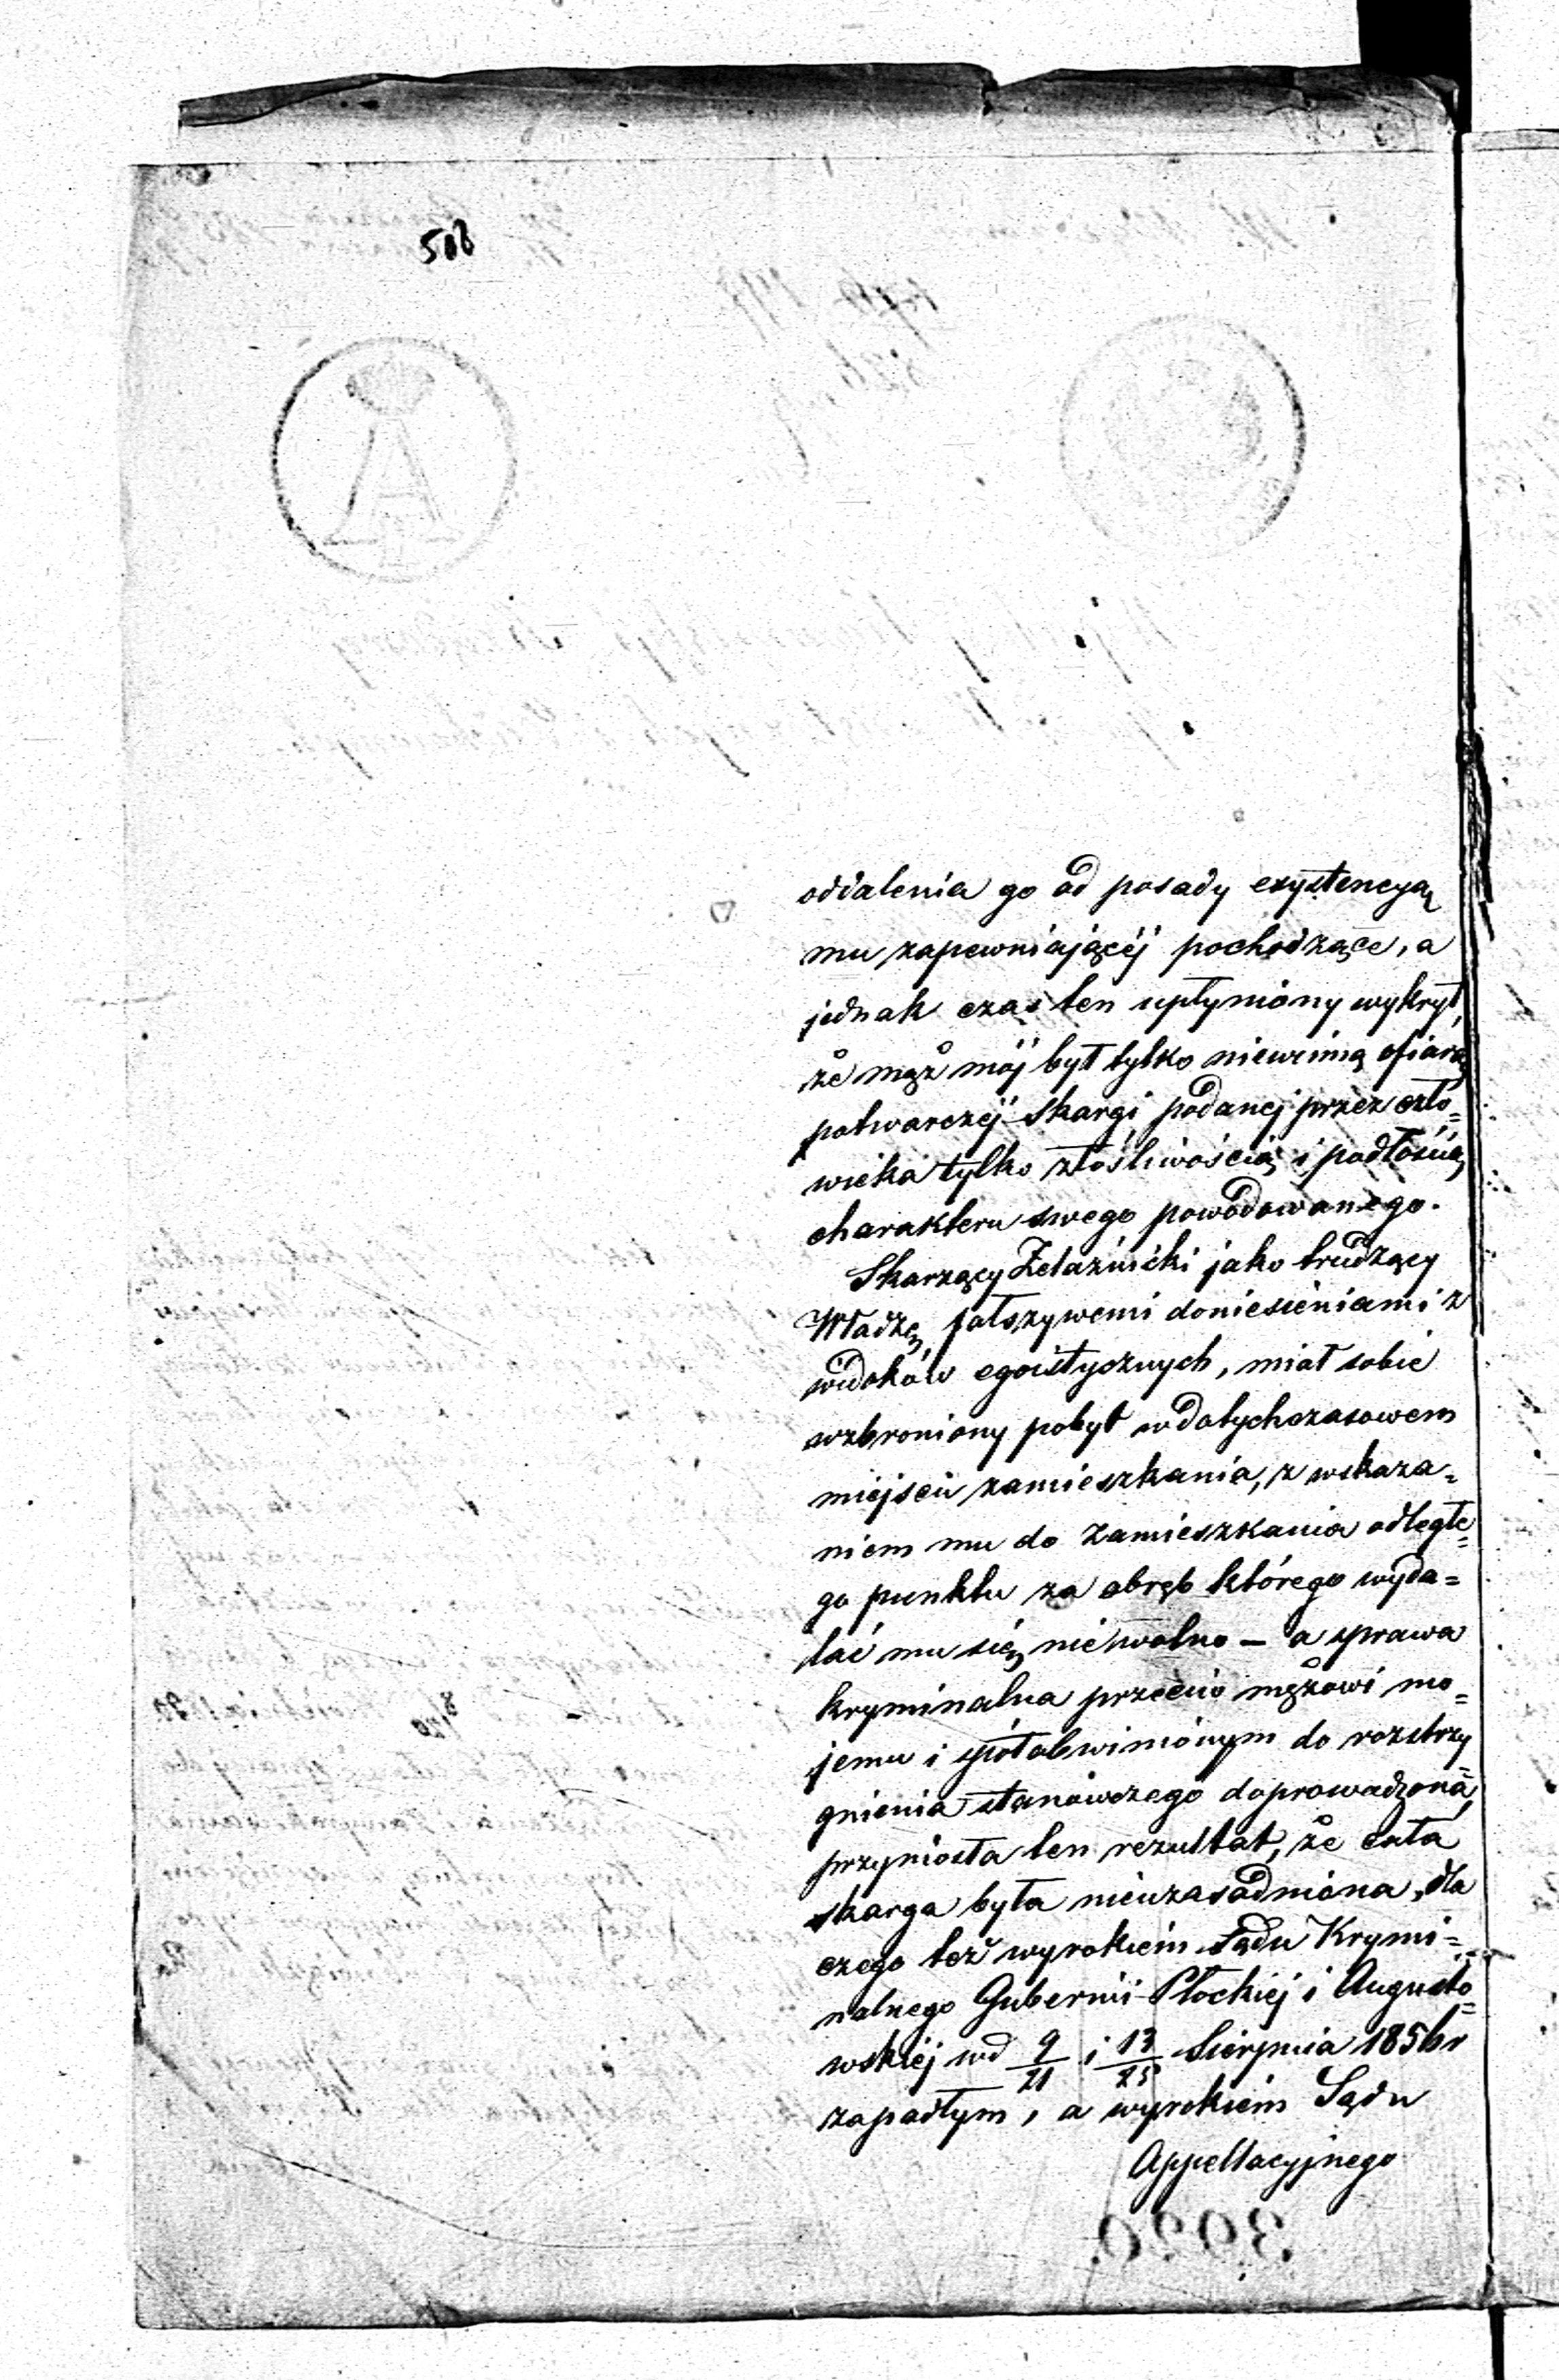 508
oddalenia go od posady exystencyą
mu zapewniającéj pochodzące, a
jednak czas ten upłyniony wykrył,
że mąż mój był tylko niewinną ofiarą
potwarczéj skargi podanej przez czło=
wieka tylko złośliwością i podłością
charakteru swego powodowanego.
Skarżący Żelaźnicki jako trudzący
Władzę fałszywemi doniesieniami z
widoków egoistycznych, miał sobie
wzbroniony pobyt w dotychczasowem
miejscu zamieszkania, z wskaza=
niem mu do zamieszkania odległe=
go punktu za obręb którego wyda=
lać mu się nie wolno — a sprawa
kryminalna przeciw mężowi mo=
jemu i spółobwinionym do rozstrzy
gnienia stanowczego doprowadzona,
przyniosła ten rezultat, że cała
skarga była nieuzasadniona, dla
czego też wyrokiem Sądu Krymi=
nalnego Gubernii Płockiéj i Augusto=
wskiéj w d 9/21 i 13/25 Sierpnia 1856 r
zapadłym, a wyrokiem Sądu
Appellacyjnego